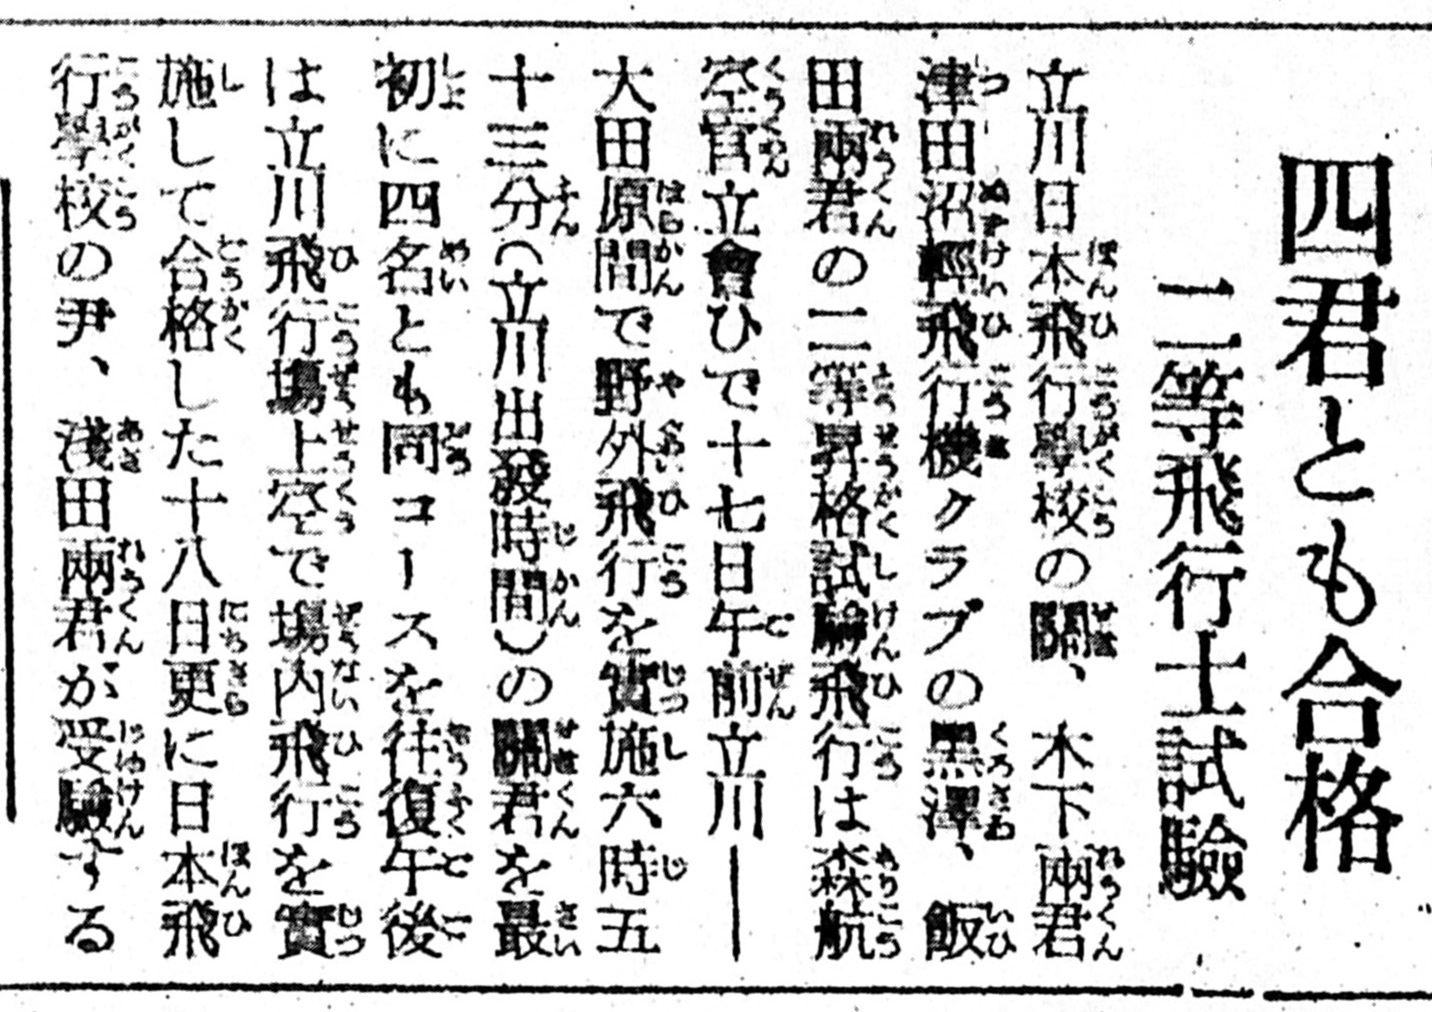 四君とも合格
二等飛行士試驗
立川日本飛行學校の關、木下兩君
津田沼輕飛行機クラブの黑澤、飯
田兩君の二等昇格試驗飛行は森航
空官立會ひで十七日午前立川―
大田原間で野外飛行を實施六時五
十三分（立川出發時間）の關君を最
初に四名とも同コースを往復午後
は立川飛行場上空で場内飛行を實
施して合格した十八日更に日本飛
行學校の尹、淺田兩君が受驗する